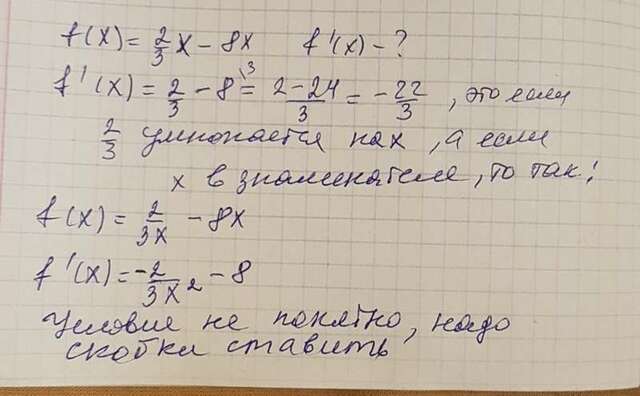 f(x) = 2/3 x - 8x f'(x) - ?
f'(x) = 2/3 - 8\3 = 2-24/3 = -22/3 , это если
2/3 умножается на х , а если
х в знаменателе, то так:
f(x) = 2/3x - 8x
f'(x) = -2/3x² - 8
Условие не понятно, надо
скобки ставить